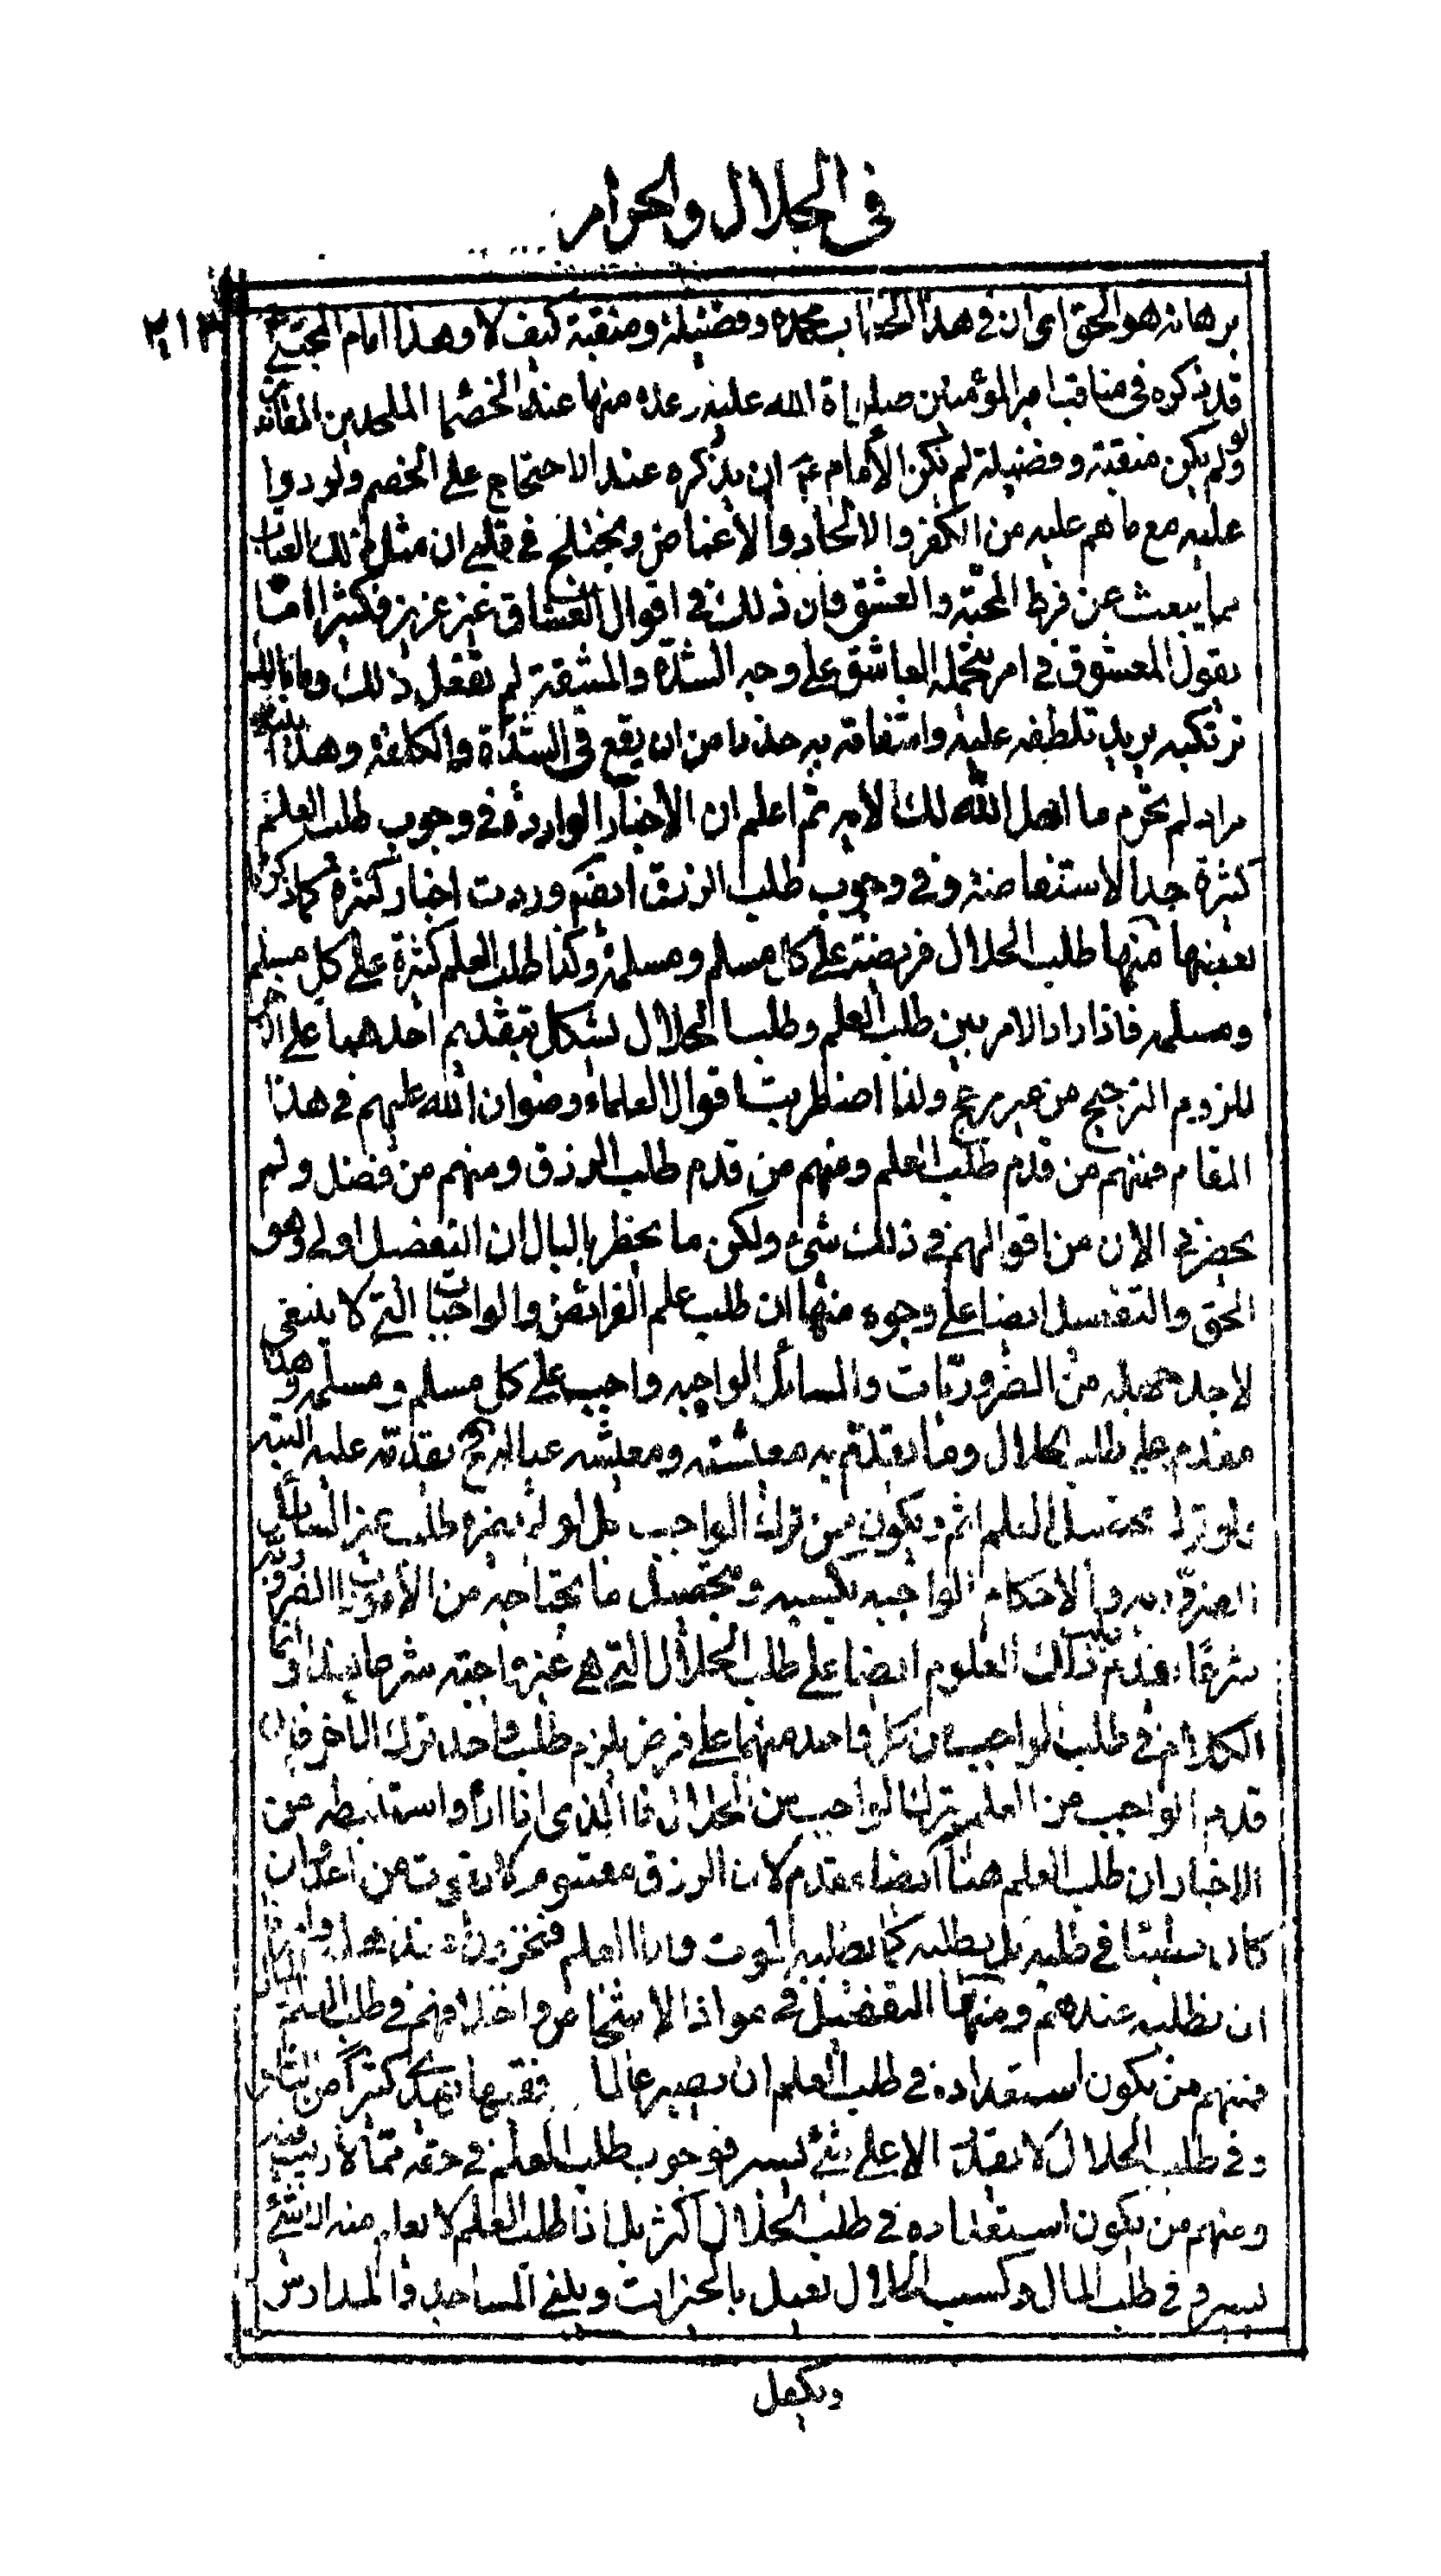 فى الحلال والحرام
٢١٣
برهانه هو الحق اى ان فى هذا الخطاب محمدة وفضيلة ومنقبة كيف لا وهذا امام المجتبى ع
قد ذكره فى مناقب امير المؤمنين صلوة الله عليه وعده منها عند الخصماء الملحدين
ولو لم يكن منقبة وفضيلة لم يكن الأمام ع ان يذكره عند الاحتجاج على الخصم ولو ردوا
عليه مع ما هم عليه من الكفر والالحاد والاغماض ويختلج فى قلبى ان مثل ذلك العتاب
مما يبعث عن فرط المحبة والعشق فان ذلك فى اقوال العشاق غير عزيز فكثيرا ما
يقول المعشوق فى امر يتحمله العاشق على وجه الشدة والمشقة لم تفعل ذلك
ترتكبه يريد تلطفه عليه واشفاقه به حذرا من ان يقع فى الشدة والكلفة وهذا
مراد لم تحرم ما احل الله لك الأية ثم اعلم ان الأخبار الواردة فى وجوب طلب العلم
كثيرة جدا لاستفاضته وفى وجوب طلب الرزق ايضا وردت اخبار كثيرة كما ذكرنا
بعضها منها طلب الحلال فريضة على كل مسلم ومسلمة وكذا طلب العلم كثيرة على كل مسلم
ومسلمة فاذا دار الامر بين طلب العلم وطلب الحلال يشكل تقديم احدهما على الاخر
للزوم الترجيح من غير مرجح ولذا اضطربت اقوال العلماء رضوان الله عليهم فى هذا
المقام فمنهم من قدم طلب العلم ومنهم من قدم طلب الرزق ومنهم من فصل ولم
يحضرنى الان من اقوالهم فى ذلك شئ ولكن ما يخطر بالبال ان التفصيل اولى وهو
الحق والتفصيل ايضا على وجوه منها ان طلب علم الفرائض والواجبات التى لا ينبغى
لاحد جهله من الضروريات والمسائل الواجبه واجب على كل مسلم ومسلمه وهذا
مقدم على طلب الحلال وما يقدم به معيشته ومعيشه عياله يقدمه عليه البته
ولو ترك تحصيل العلم اثم ويكون من ترك الواجب بل لو لم طلب عن المسائل
الضروريه والأحكام الواجبه بكسبه وتحصيل ما يحتاجه من الأمورات الضرورية
شرعا يقدم تلك العلوم ايضا على طلب الحلال التى هى غير واجبة شرعا وانما
الكلام فى طلب الواجب من كل واحد منهما على فرض يلزم طلب واحد ترك الأخر فان
قدم الواجب من العلم يترك الواجب من الحلال فالذى انا اراه واستنبطه من
الاخبار ان طلب العلم هنا ايضا مقدم لان الرزق مقسوم
كان مبطئا فى طلبه بل يطلبه كما يطلبه الموت واما العلم فمخزون عند اهله
ان يطلبه عندهم ومنها التفصيل فى مواد الاشخاص واختلافهم فى طلب العلم
فمنهم من يكون استعداده فى طلب العلم ان يصير عالما فقيها يهدى كثيرا من الناس
وفى طلب الحلال لا يقدر الا على شئ يسير فوجوب طلب العلم فى حقه مما لا ريب فيه
ومنهم من يكون استعداده فى طلب الحلال اكثر بل اذا طلب العلم لا يعلم منه الا شئ
يسير وفى طلب المال وكسب الحلال يعمل بالخيرات ويبنى المساجد والمدارس
ويكفل